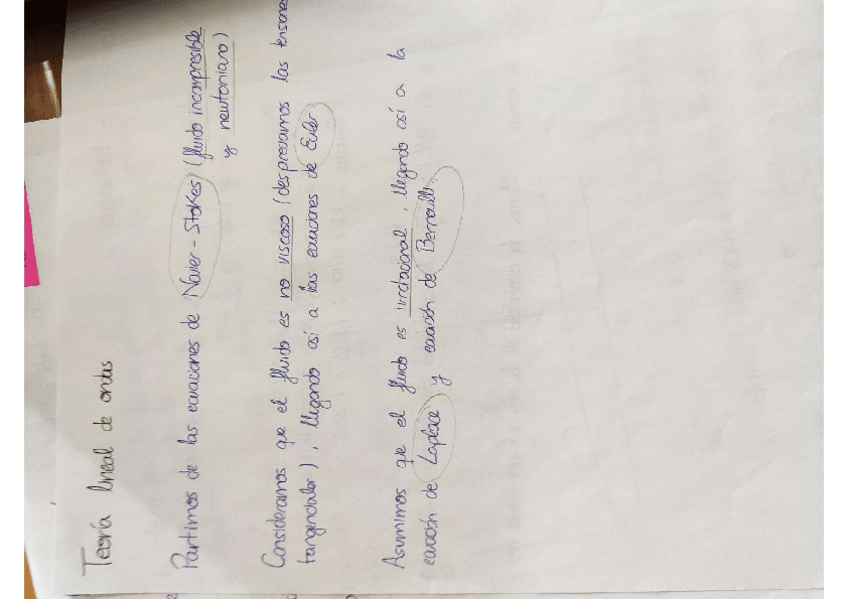 Teoría lineal de ondas
Partimos de las ecuaciones de Navier-Stokes (fluido incompresible
y newtoniano)
Consideramos que el fluido es no viscoso (despreciamos las tensiones
tangenciales), llegando así a las ecuaciones de Euler
Asumimos que el fluido es irrotacional, llegando así a la
ecuación de Laplace y ecuación de Bernoulli.